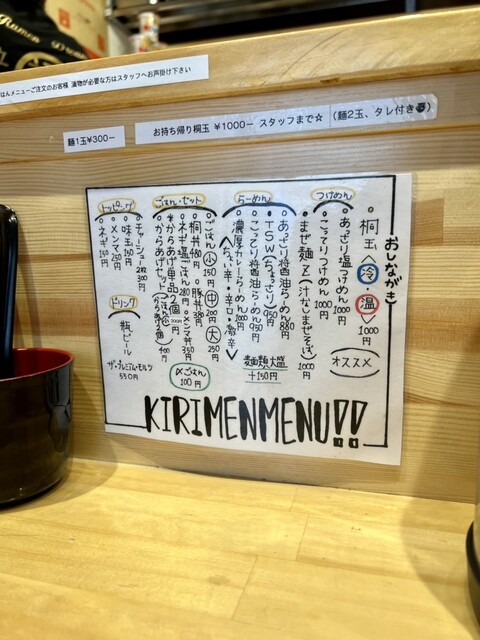 Ramen
はんメニューご注文のお客様 漬物が必要な方はスタッフへお声掛け下さい
麺1玉¥300ー
お持ち帰り桐玉 ¥1000ー スタッフまで☆ (麺2玉、タレ付き
おしながき
桐玉〈冷・温〉1000円
オススメ
つけめん
あっさり塩つけめん 1000円
こってりつけめん 1000円
まぜ麺Z(汁なしまぜそば) 1000円
らーめん
あっさり醤油らーめん 880円
TSW(ちょっこり) 950円
こってり醤油らーめん 950円
濃厚カレーらーめん 1000円
〈ちょい辛・辛口・激辛〉
麺類大盛
+150円
ごはん・セット
ごはん 小 150円 中 200円 大 250円
桐丼 480円 豚丼 380円
ネギ塩ごはん 280円 メンマ丼 350円
からあげ単品2個 200円
からあげセット(ごはん小 からあげ2個) 400円
〆ごはん
100円
トッピング
チャーシュー2枚 300円
味玉 150円
メンマ 250円
ネギ 150円
ドリンク
瓶ビール
ザ・プレミアム・モルツ
550円
KIRIMENMENU!!